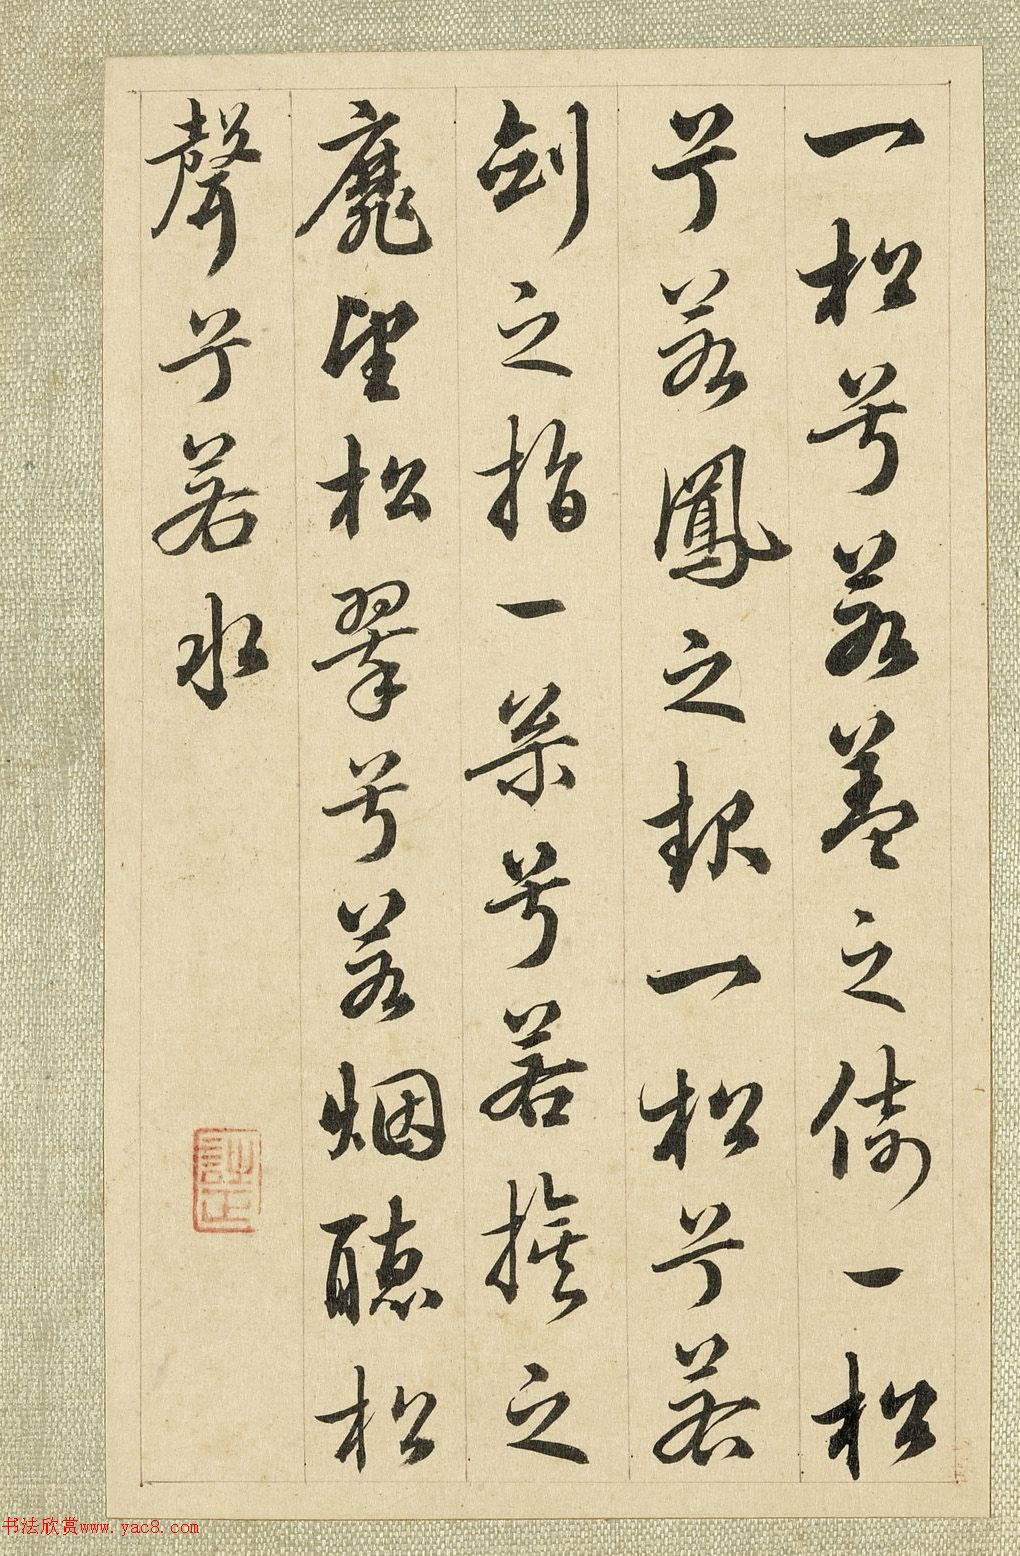 一松兮若蓋之倚一松
兮若鳳之一松兮若
劍之指一兮若之
麾望松翠兮若烟聽松
聲兮若水
书法欣赏www.yac8.com